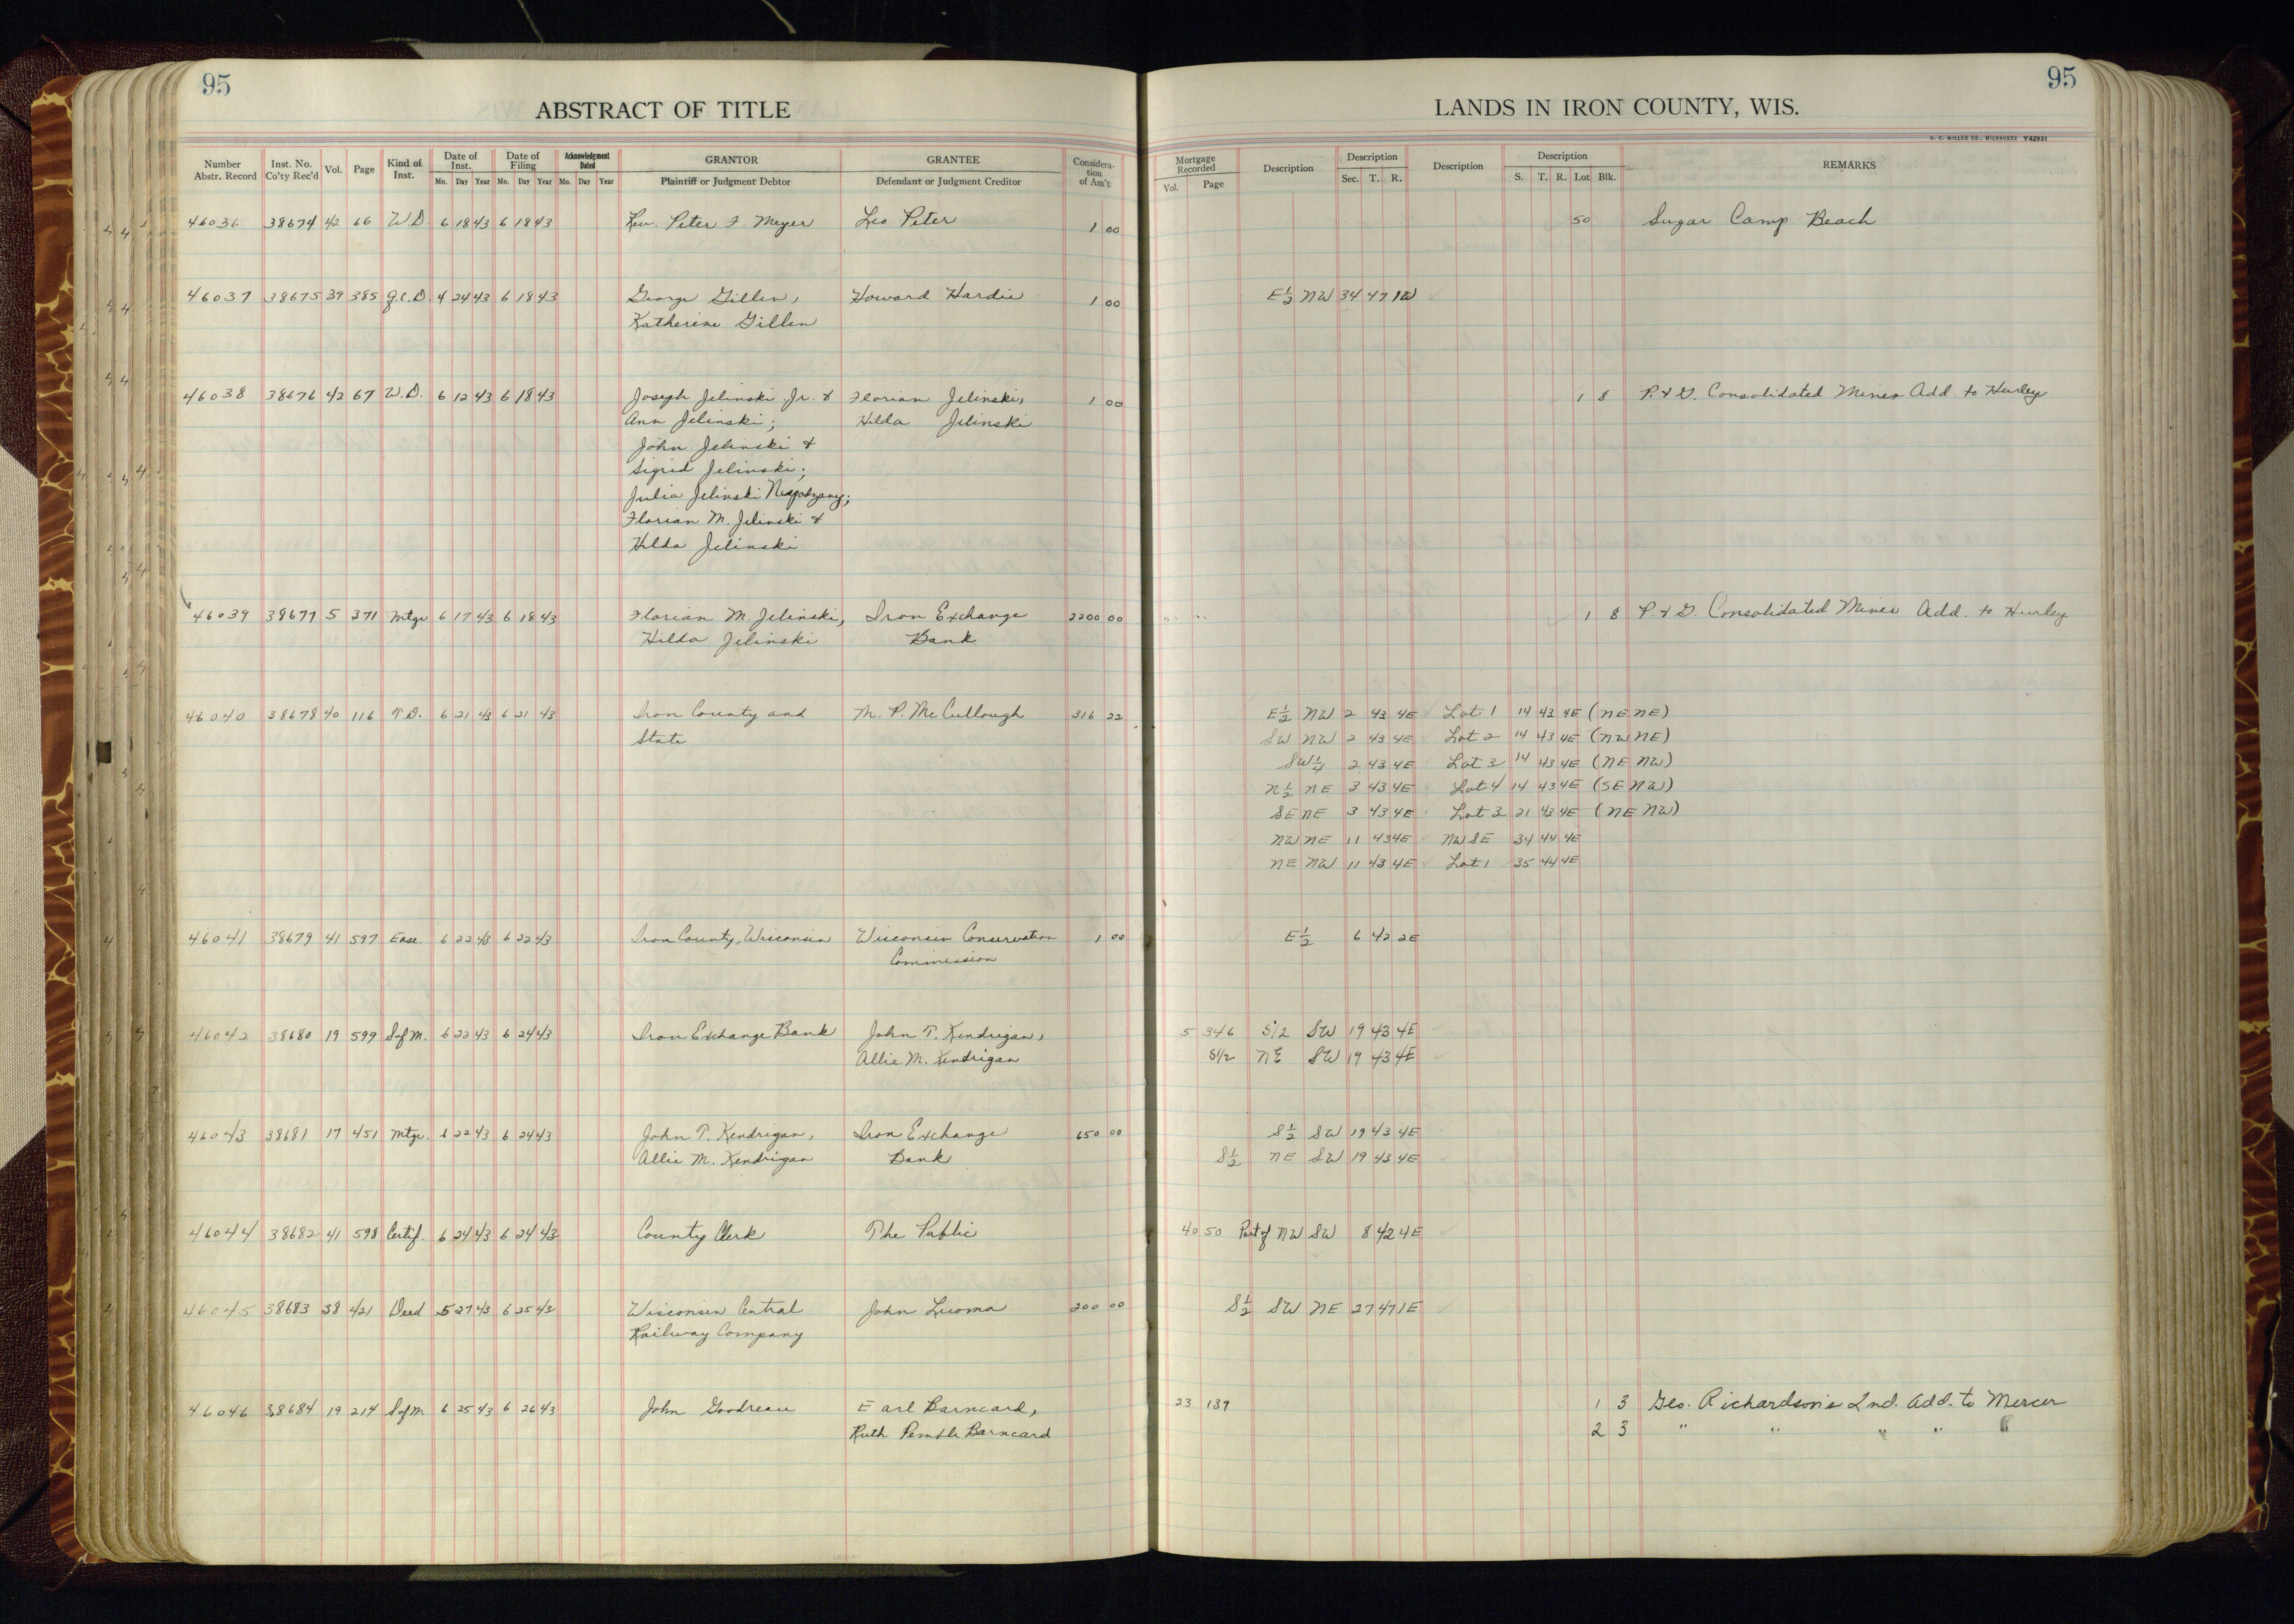 95
95
ABSTRACT OF TITLE
LANDS IN IRON COUNTY, WIS.
H. C. MILLER CO., MILWAUKEE Y42931
Number Abstr. Record Inst. No. Co'ty Rec'd Vol. Page Kind of Inst. Date of Inst. Mo. Day Year Date of Filing Mo. Day Year Acknowledgment Dated Mo. Day Year GRANTOR Plaintiff or Judgment Debtor GRANTEE Defendant or Judgment Creditor Consideration of Am't Mortgage Recorded Vol. Page Description Description Sec. T. R. Description Description S. T. R. Lot Blk. REMARKS
46036 38674 42 66 W D 6 18 43 6 18 43 Rev. Peter F. Meyer Leo Peter 1 00 50 Sugar Camp Beach
46037 38675 39 385 Q.C.D. 4 24 43 6 18 43 George Gillen, Howard Hardie 1 00 E½ NW 34 47 1W
Katherine Gillen
46038 38676 42 67 W.D. 6 12 43 6 18 43 Joseph Jelinski Jr. & Florian Jelinski, 1 00 1 8 P. & G. Consolidated Mines Add to Hurley
Ann Jelinski; Hilda Jelinski
John Jelinski &
Sigrid Jelinski;
Julia Jelinski
Florian M. Jelinski &
Hilda Jelinski
46039 38677 5 371 Mtge 6 17 43 6 18 43 Florian M. Jelinski, Iron Exchange 2200 00 1 8 P. & G. Consolidated Mines Add. to Hurley
Hilda Jelinski Bank
46040 38678 40 116 T.D. 6 21 43 6 21 43 Iron County and M. P. McCullough 316 22 E½ NW 2 43 4E Lot 1 14 43 4E (NE NE)
State SW NW 2 43 4E Lot 2 14 43 4E (NW NE)
SW¼ 2 43 4E Lot 3 14 43 4E (NE NW)
N½ NE 3 43 4E Lot 4 14 43 4E (SE NW)
SE NE 3 43 4E Lot 3 21 43 4E (NE NW)
NW NE 11 43 4E NW SE 34 44 4E
NE NW 11 43 4E Lot 1 35 44 4E
46041 38679 41 597 Ease. 6 22 43 6 22 43 Iron County, Wisconsin Wisconsin Conservation 1 00 E½ 6 42 2E
Commission
46042 38680 19 599 S of M. 6 22 43 6 24 43 Iron Exchange Bank John T. Kendrigan, 5 346 S½ SW 19 43 4E
Allie M. Kendrigan S1/2 NE SW 19 43 4E
46043 38681 17 451 Mtge. 6 22 43 6 24 43 John T. Kendrigan, Iron Exchange 650 00 S½ SW 19 43 4E
Allie M. Kendrigan Bank S½ NE SW 19 43 4E
46044 38682 41 598 Certif. 6 24 43 6 24 43 County Clerk The Public 40 50 Part of NW SW 8 42 4E
46045 38683 38 421 Deed 5 27 43 6 25 43 Wisconsin Central John Luoma 200 00 S½ SW NE 27 47 1E
Railway Company
46046 38684 19 214 S of M 6 25 43 6 26 43 John Goodreau Earl Barncard, 23 139 1 3 Geo. Richardson's 2nd. Add. to Mercer
Ruth Pemble Barncard 2 3 " " " " "